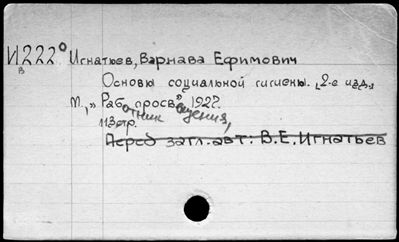 И222⁰ Игнатьев, Варнава Ефимович
в
Основы социальной гигиены. 2-е изд.
М., "Работник просвещения", 1927.
113 стр.
Перед загл. авт: В.Е. Игнатьев